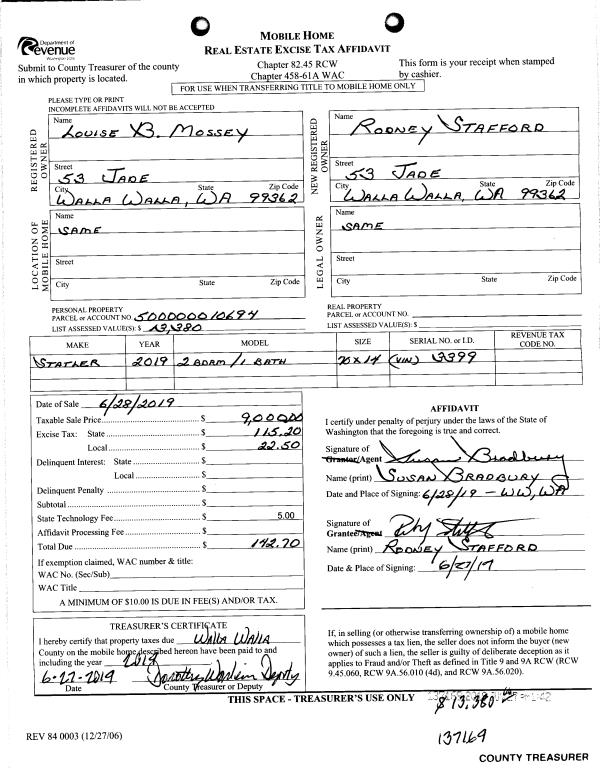 Department of
Revenue
Washington State
MOBILE HOME
REAL ESTATE EXCISE TAX AFFIDAVIT
Submit to County Treasurer of the county
in which property is located.
Chapter 82.45 RCW
Chapter 458-61A WAC
This form is your receipt when stamped
by cashier.
FOR USE WHEN TRANSFERRING TITLE TO MOBILE HOME ONLY
PLEASE TYPE OR PRINT
INCOMPLETE AFFIDAVITS WILL NOT BE ACCEPTED
REGISTERED OWNER
Name
LOUISE B. MOSSEY
Street
53 JADE
City State Zip Code
WALLA WALLA, WA 99362
NEW REGISTERED OWNER
Name
RODNEY STAFFORD
Street
53 JADE
City State Zip Code
WALLA WALLA, WA 99362
LOCATION OF MOBILE HOME
Name
SAME
Street
City State Zip Code
LEGAL OWNER
Name
SAME
Street
City State Zip Code
PERSONAL PROPERTY
PARCEL or ACCOUNT NO. 500000010694
LIST ASSESSED VALUE(S): $ 13,380
REAL PROPERTY
PARCEL or ACCOUNT NO.
LIST ASSESSED VALUE(S): $
MAKE YEAR MODEL SIZE SERIAL NO. or I.D. REVENUE TAX CODE NO.
STATLER 2019 2 BDRM / 1 BATH 70 X 14 (VIN) 3399
Date of Sale 6/28/2019
Taxable Sale Price $ 9,000.00
Excise Tax: State $ 115.20
Local $ 22.50
Delinquent Interest: State $
Local $
Delinquent Penalty $
Subtotal $
State Technology Fee $ 5.00
Affidavit Processing Fee $
Total Due $ 142.70
If exemption claimed, WAC number & title:
WAC No. (Sec/Sub)
WAC Title
A MINIMUM OF $10.00 IS DUE IN FEE(S) AND/OR TAX.
AFFIDAVIT
I certify under penalty of perjury under the laws of the State of
Washington that the foregoing is true and correct.
Signature of
Grantor/Agent Susan Bradbury
Name (print) SUSAN BRADBURY
Date and Place of Signing: 6/28/19 - WW, WA
Signature of
Grantee/Agent
Name (print) RODNEY STAFFORD
Date & Place of Signing: 6/27/19
TREASURER'S CERTIFICATE
I hereby certify that property taxes due WALLA WALLA
County on the mobile home described hereon have been paid to and
including the year 2019
6-27-2019 Deputy
Date County Treasurer or Deputy
If, in selling (or otherwise transferring ownership of) a mobile home
which possesses a tax lien, the seller does not inform the buyer (new
owner) of such a lien, the seller is guilty of deliberate deception as it
applies to Fraud and/or Theft as defined in Title 9 and 9A RCW (RCW
9.45.060, RCW 9A.56.010 (4d), and RCW 9A.56.020).
THIS SPACE - TREASURER'S USE ONLY
$ 13,380
137169
REV 84 0003 (12/27/06)
COUNTY TREASURER